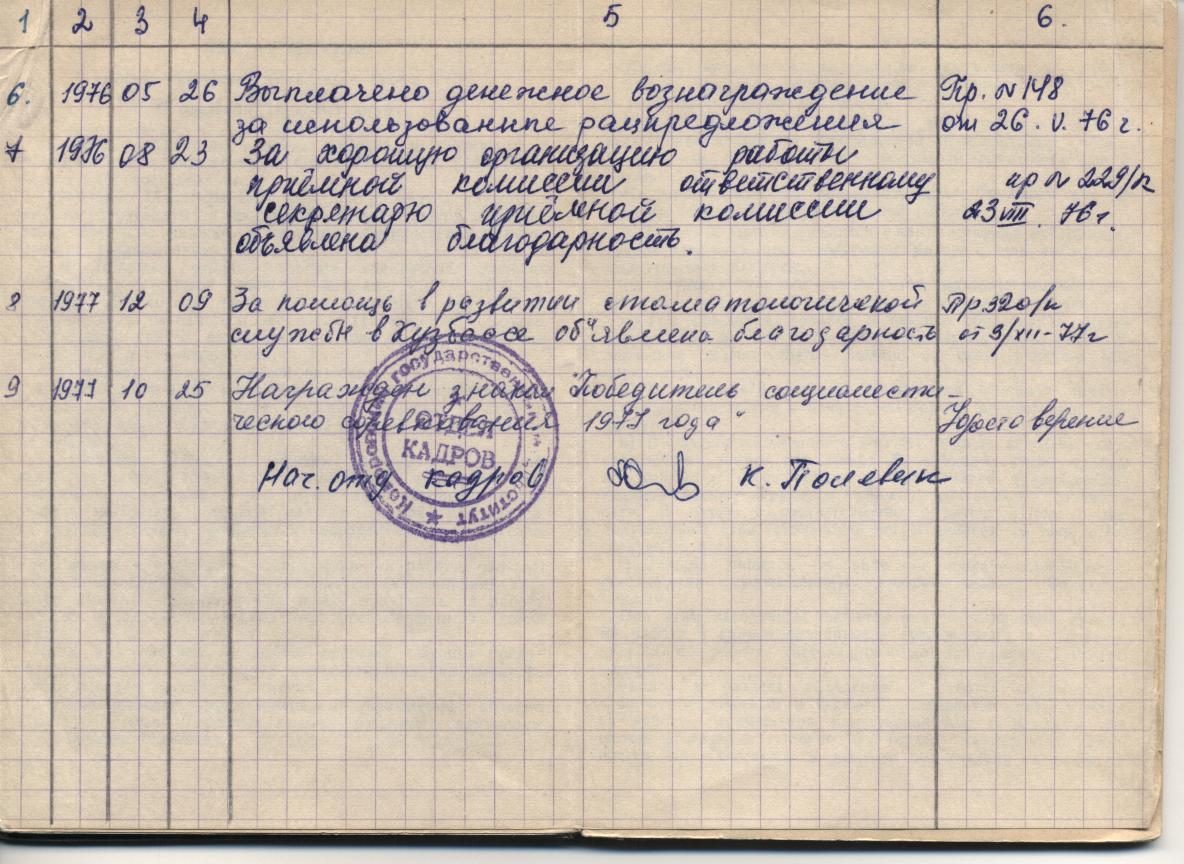 1 2 3 4 5 6.
6. 1976 05 26 Выплачено денежное вознаграждение Пр. № 148
за использованные рацпредложения от 26. V. 76 г.
7 1976 08 23 За хорошую организацию работы
приёмной комиссии ответственному пр № 229/к
секретарю приёмной комиссии 23 VIII. 76 г.
объявлена благодарность.
8 1977 12 09 За помощь в развитии стоматологической Пр 320/к
службы в Кузбассе об"явлена благодарность от 9/XII-77 г
9 1977 10 25 Награжден знаком "Победитель социалисти-
ческого соревнования 1977 года" Удостоверение
ОТДЕЛ
КАДРОВ
Нач. отд кадров К. Полевик